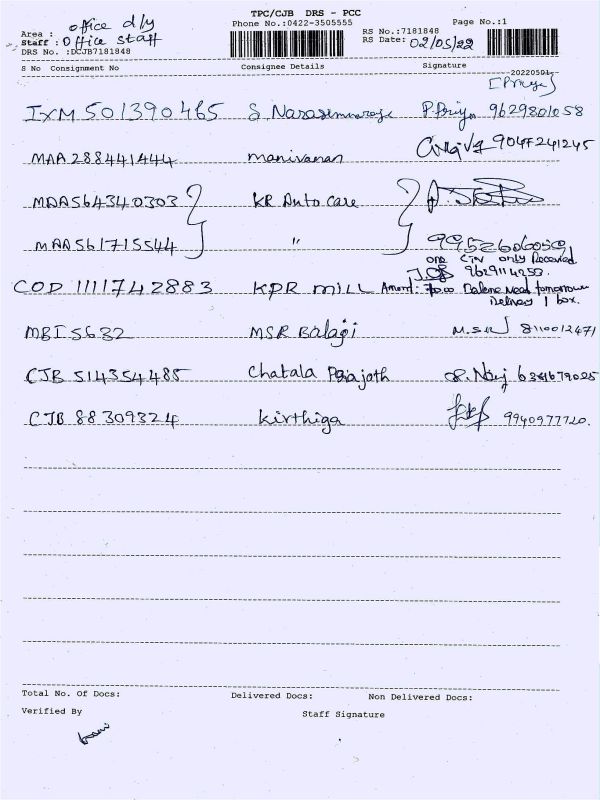 TPC/CJB DRS - PCC
Phone No.:0422-3505555 Page No.:1
Area : office dly
Staff : Office staff
DRS No. :DCJB7181848
RS No.:7181848
RS Date: 02/05/22
S No Consignment No Consignee Details Signature
20220501
[Priya]
IXM 501390465 P. Priya 9629801058
MAA 288441444 manivanan 9047241245
MAA564340303 KR Auto care
MAA561715544 " 9952606050
one only Received
JOB 9629114253
COD 1111742883 KPR MILL Amont: Need tomorrow
Delivery 1 box.
MBI 5632 MSR Balaji 8110012471
CJB 514354485 Chatala
CJB 88309324 Kirthiga 9940977720.
Total No. Of Docs: Delivered Docs: Non Delivered Docs:
Verified By Staff Signature